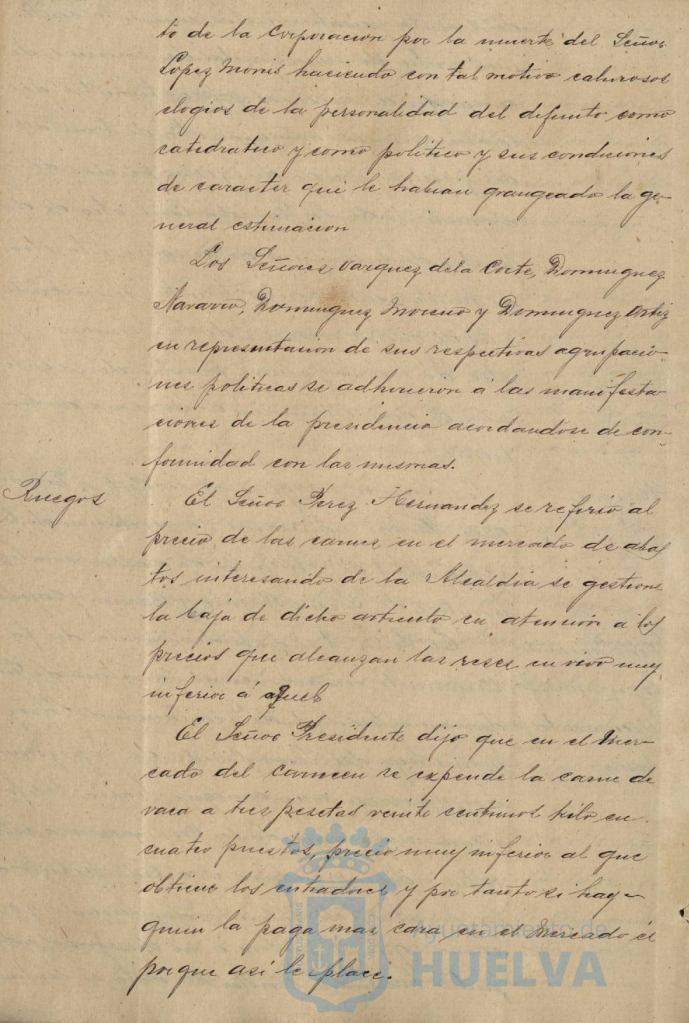 to de la Corporacion por la muerte del Señor
Lopez Monis haciendo con tal motivo calurosos
elogios de la personalidad del difunto como
catedratico y como politico y sus condiciones
de caracter que le habian grangeado la ge-
neral estimacion
Los Señores Vazquez de la Corte, Dominguez
Navarro, Dominguez Moreno y Dominguez Ortiz
en representacion de sus respectivas agrupacio-
nes politicas se adhirieron á las manifesta
ciones de la presidencia acordandose de con-
formidad con las mismas.
Ruegos
El Señor Perez Hernandez se refirio al
precio de las carnes en el mercado de abas
tos interesando de la Alcaldia se gestione
la baja de dicho articulo en atención a los
precios que alcanzan las reses en vivo muy
inferior á aquel
El Señor Presidente dijo que en el Mer-
cado del Carmen se expende la carne de
vaca a tres pesetas veinte centimos kilo en
cuatro puestos, precio muy inferior al que
obtiene los entradores y por tanto si hay
quien la paga mas cara en el Mercado és
porque asi le place.
Ayuntamiento de
HUELVA